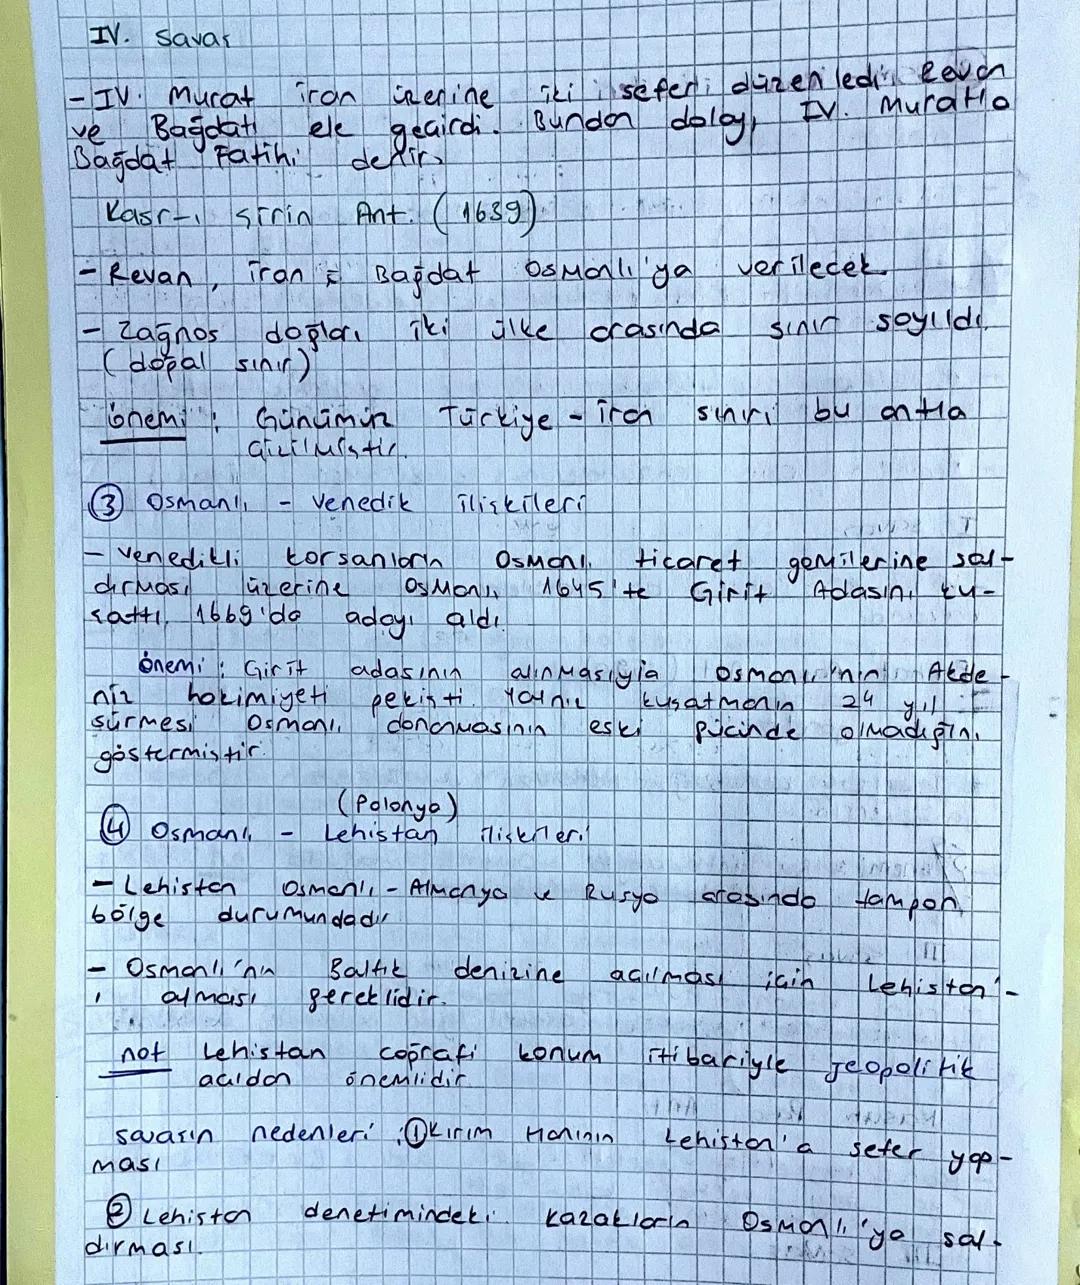 IV. Savaş
- IV. Murat İran üzerine iki seferi düzenledi. Revan
ve Bağdatı ele geçirdi. Bundan dolayı IV. Murat'a
Bağdat Fatihi denir.
Kasr-ı Şirin Ant. (1639)
- Revan, İran'a Bağdat Osmanlı'ya verilecek
- Zağnos dağları iki ülke arasında sınır sayıldı.
(doğal sınır)
önemi : Günümüz Türkiye - İran sınırı bu antla
çizilmiştir.
③ Osmanlı - Venedik ilişkileri
- Venedikli korsanların Osmanlı ticaret gemilerine sal-
dırması üzerine Osmanlı 1645'te Girit Adasını ku-
şattı, 1669'da adayı aldı
önemi : Girit adasının alınmasıyla Osmanlı'nın Akde-
niz hakimiyeti pekişti. Yalnız kuşatmanın 24 yıl
sürmesi Osmanlı donanmasının eski gücünde olmadığını
göstermiştir.
(Polonya)
④ Osmanlı - Lehistan ilişkileri
- Lehistan Osmanlı - Almanya ve Rusya arasında tampon
bölge durumundadır
- Osmanlı'nın Baltık denizine açılması için Lehistan'-
ı alması gereklidir.
not Lehistan coğrafi konum itibariyle jeopolitik
açıdan önemlidir
savaşın nedenleri : ① Kırım Hanının Lehistan'a sefer yap-
ması
② Lehistan denetimindeki Kazakların Osmanlı'ya sal-
dırması.